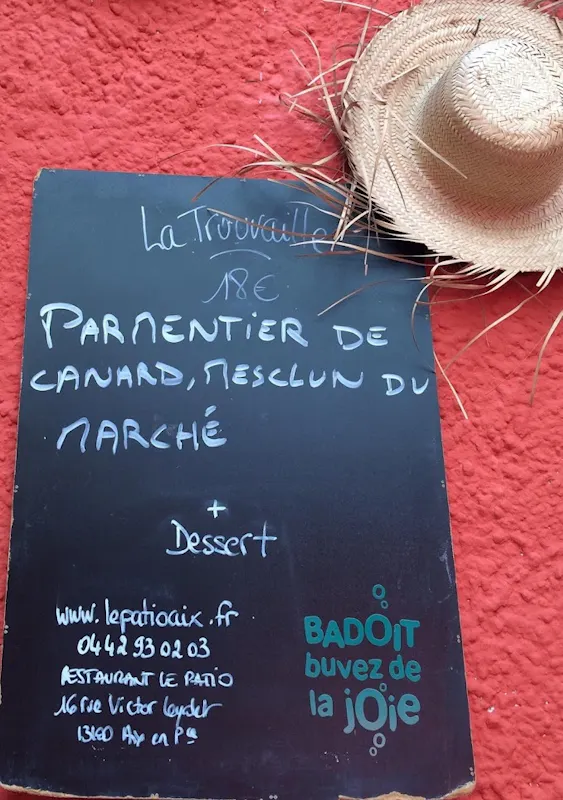 La Trouvaille
18€
PARMENTIER DE
CANARD, MESCLUN DU
MARCHÉ
+
Dessert
www.lepatioaix.fr
04 42 93 02 03
RESTAURANT LE PATIO
16 rue Victor Leydet
13100 Aix en P
BADOIT
buvez de
la joie